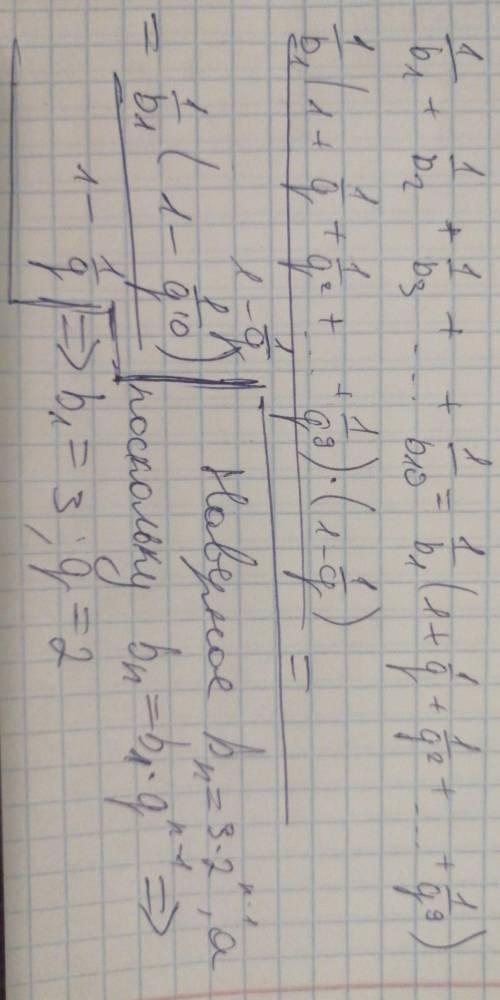 1/b₁ + 1/b₂ + 1/b₃ + ... + 1/b₁₀ = 1/b₁ (1 + 1/q + 1/q² + ... + 1/q⁹)
1/b₁ (1 + 1/q + 1/q² + ... + 1/q⁹) · (1 - 1/q) =
1 - 1/q
= 1/b₁ (1 - 1/q¹⁰)
1 - 1/q
Наверное bₙ = 3·2ⁿ⁻¹, а
поскольку bₙ = b₁·qⁿ⁻¹ =>
=> b₁ = 3, q = 2